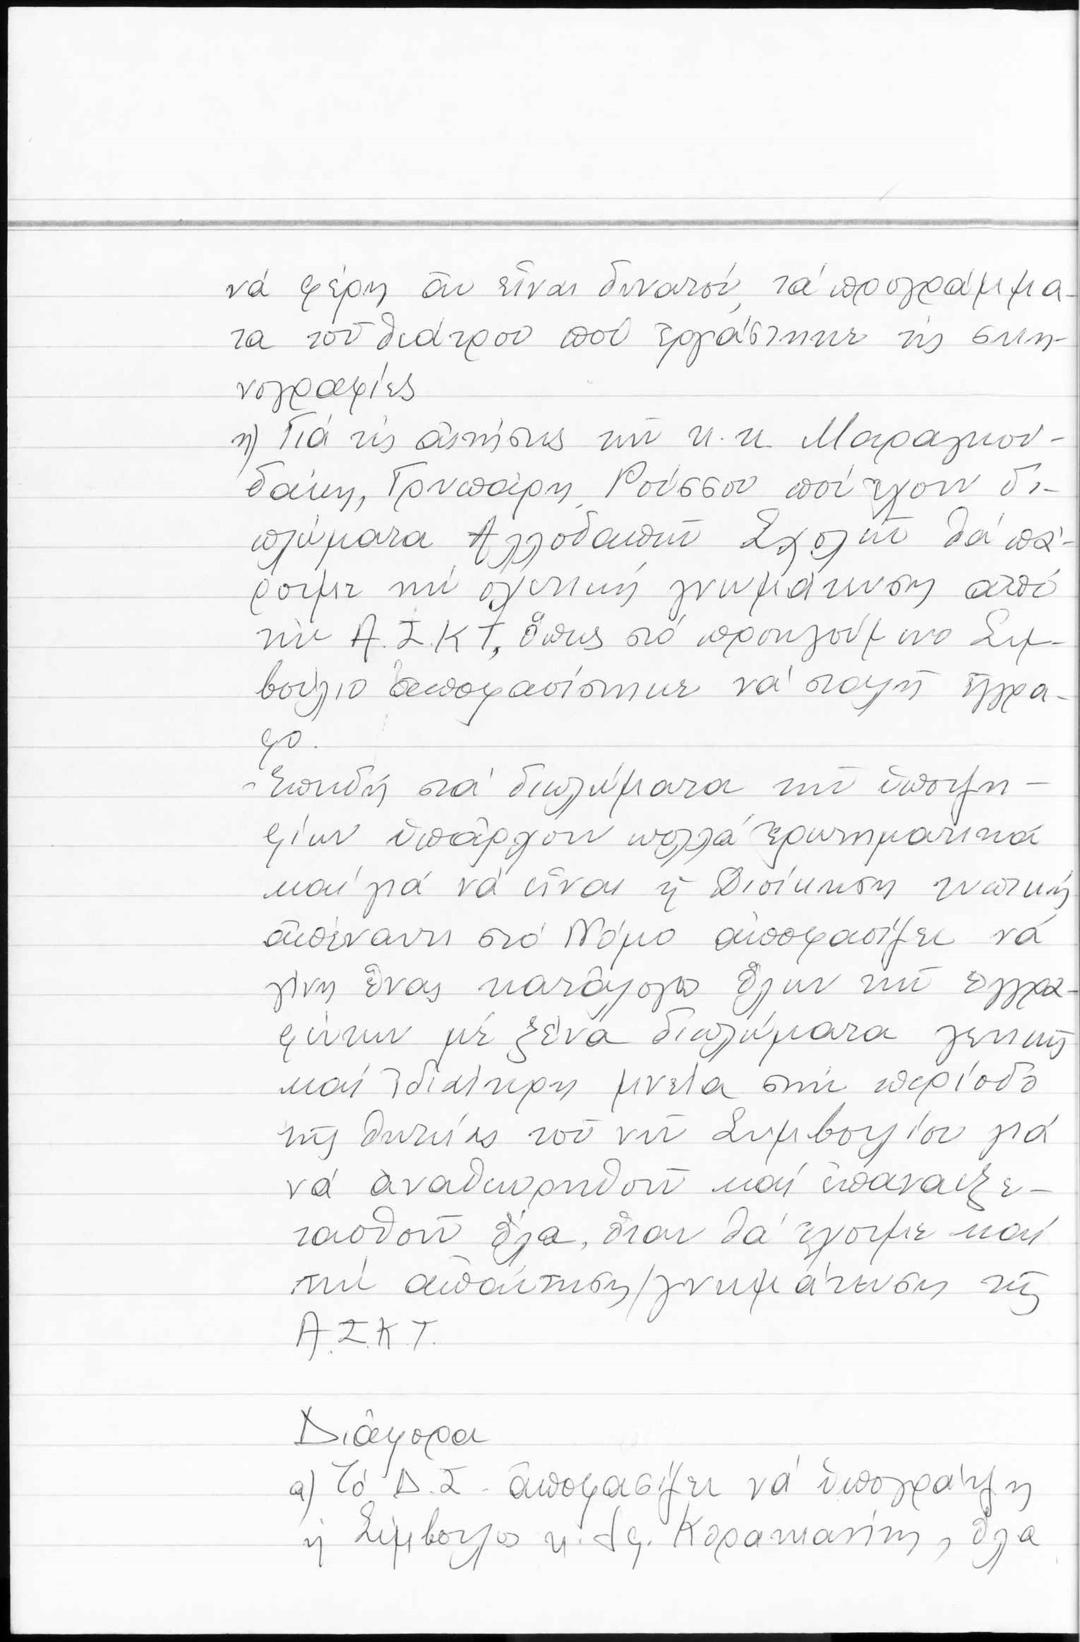 νά φέρη ἄν εἶναι δυνατόν, τά προγράμμα-
τα τοῦ θεάτρου πού ἐργάστηκε τίς σκη-
νογραφίες
η) Γιά τίς αἰτήσεις τῶν κ.κ. Μαραγκου-
δάκη, Γρυπάρη, Ρούσσου πού ἔχουν δι-
πλώματα Ἀλλοδαπῶν Σχολῶν θά πά-
ρουμε τήν σχετική γνωμάτευση ἀπό
τήν Α.Σ.Κ.Τ, ὅπως στό προηγούμενο Συμ-
βούλιο ἀποφασίστηκε νά σταλῆ ἔγγρα-
φο.
- Ἐπειδή στά διπλώματα τῶν ὑποψη-
φίων ὑπάρχουν πολλά ἐρωτηματικά
καί γιά νά εἶναι ἡ Διοίκηση συνεπής
ἀπέναντι στό Νόμο ἀποφασίζει νά
γίνη ἕνας κατάλογος ὅλων τῶν ἐγγρα-
φέντων μέ ξένα διπλώματα γενικῶς
καί ἰδιαίτερη μνεία στήν περίοδο
τῆς θητείας τοῦ νῦν Συμβουλίου γιά
νά ἀναθεωρηθοῦν καί ἐπαναεξε-
τασθοῦν ὅλα, ὅταν θά ἔχουμε καί
τήν ἀπάντηση/γνωμάτευση τῆς
Α.Σ.Κ.Τ.
Διάφορα
α) Τό Δ.Σ. ἀποφασίζει νά ὑπογράψη
ἡ Σύμβουλος κ. , ὅλα